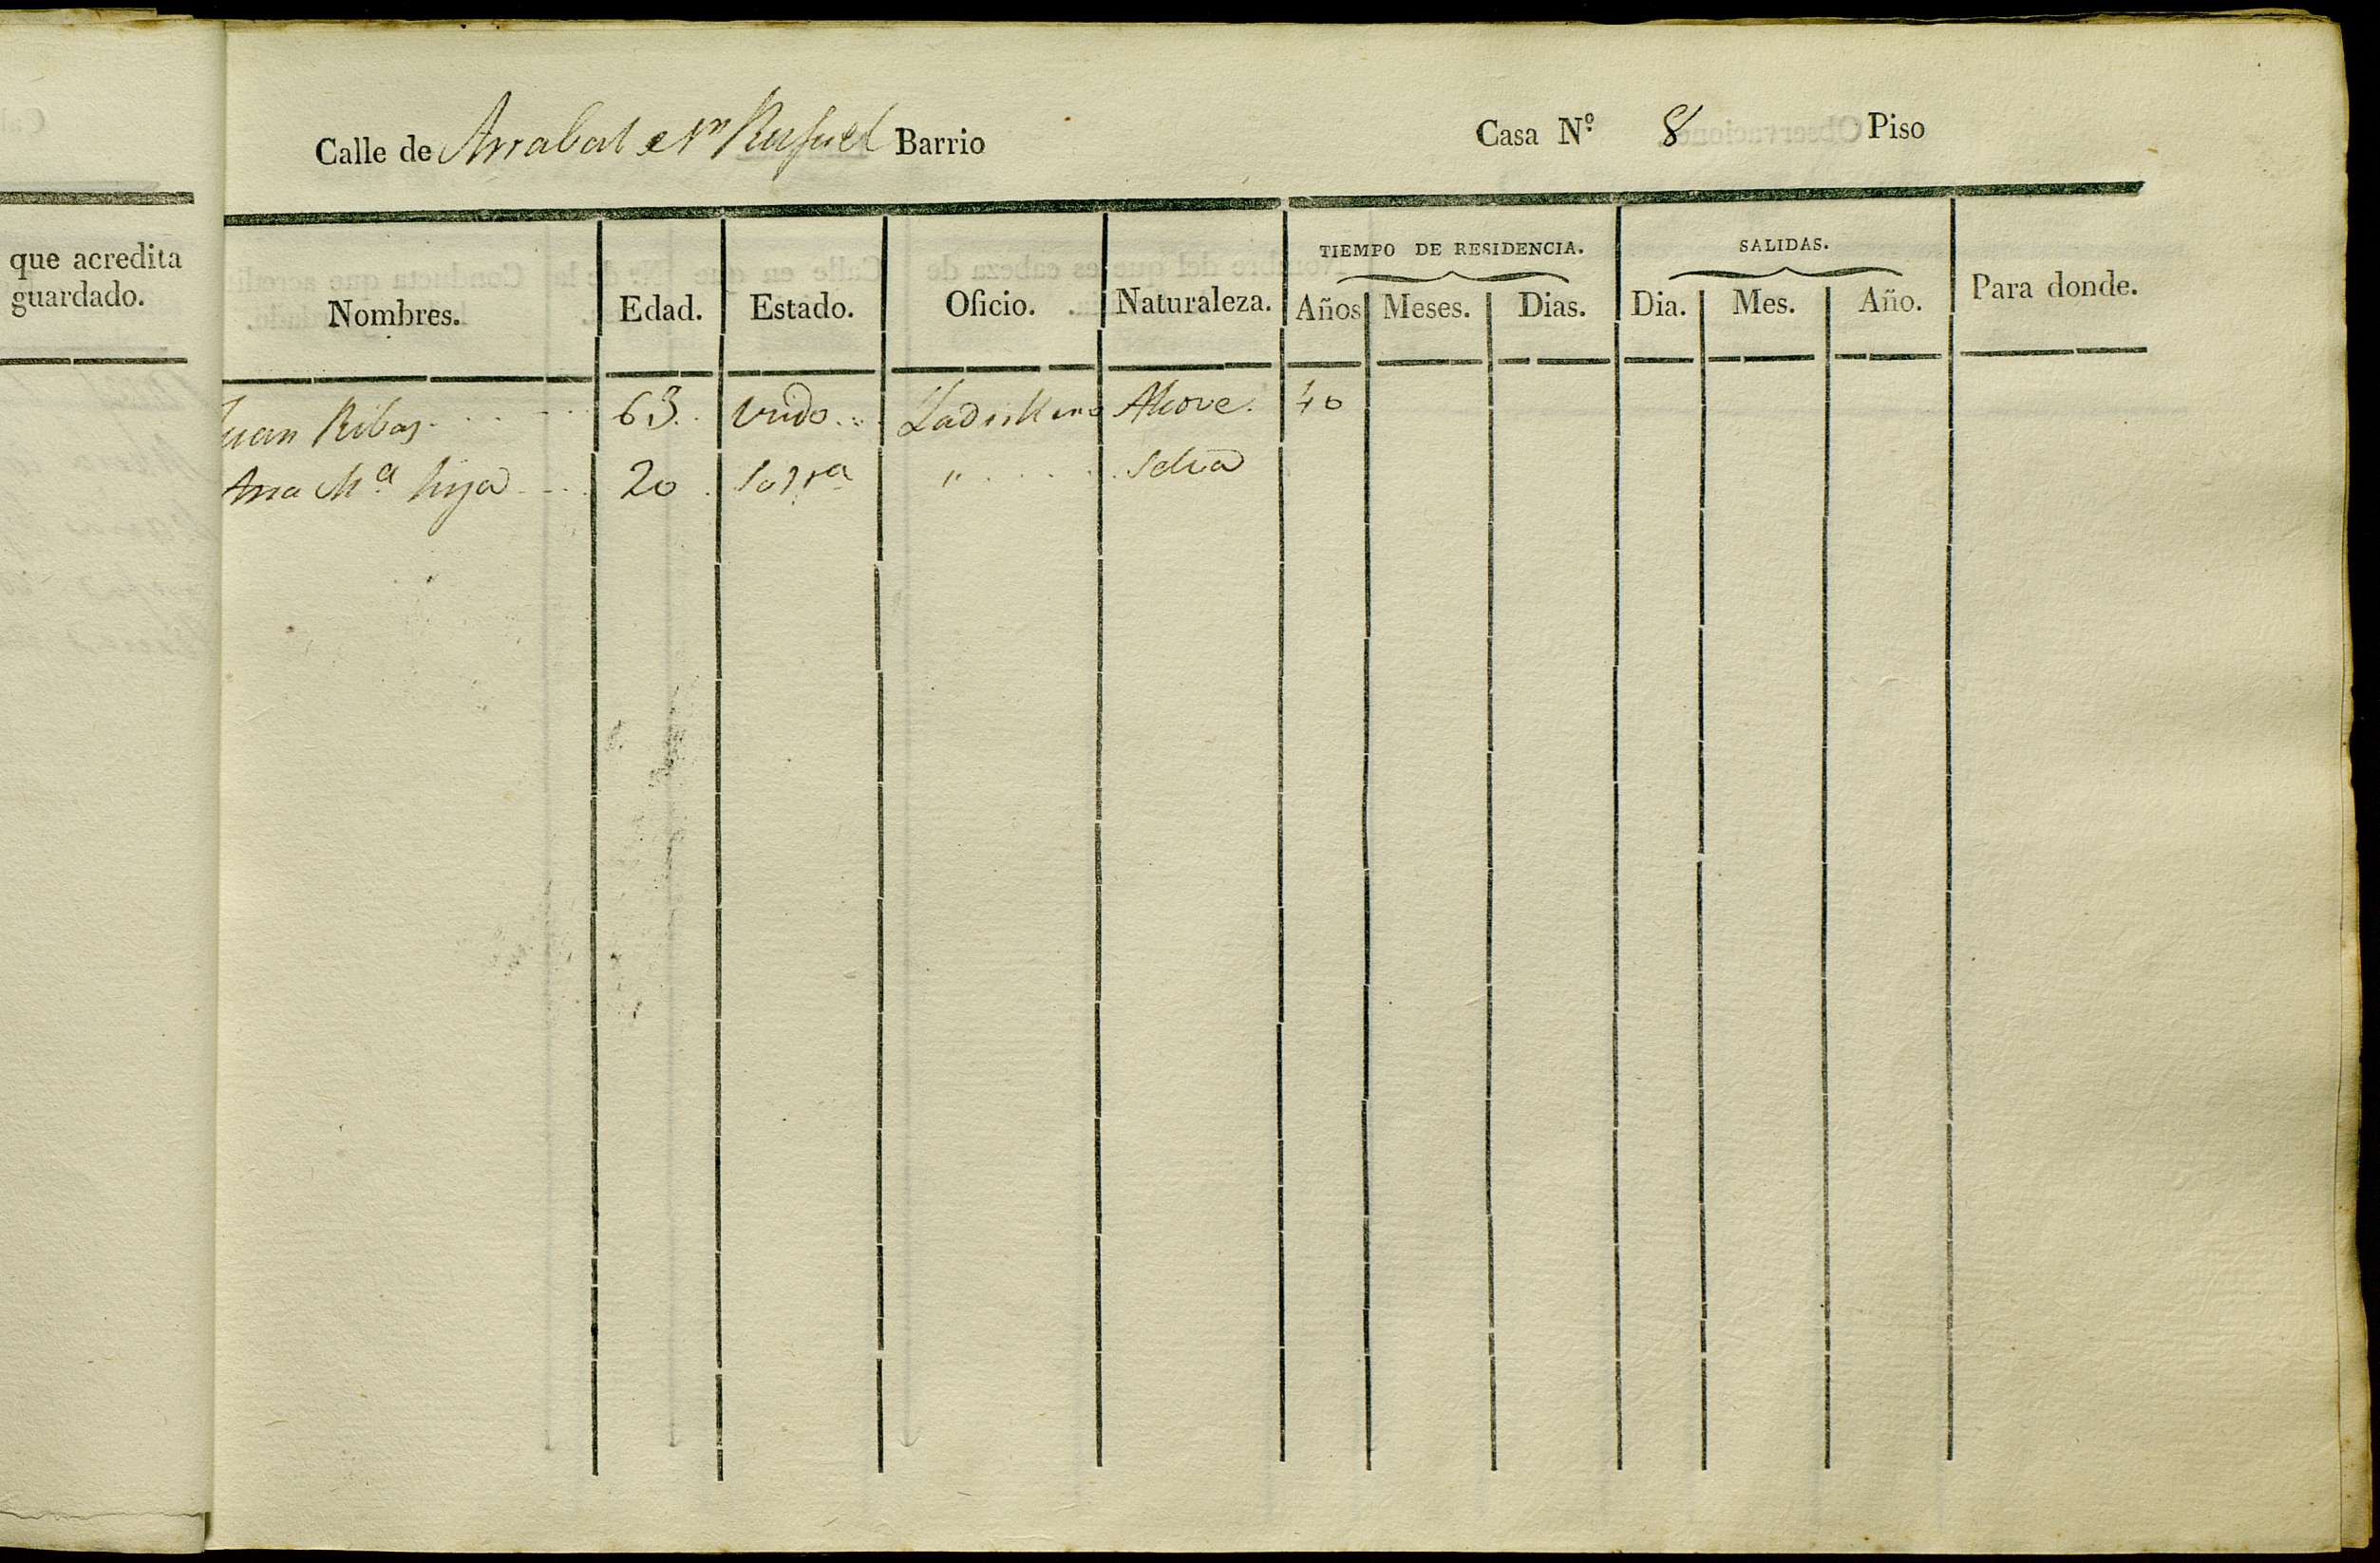 Calle de Arrabal Sn Rafael Barrio Casa Nº 8 Piso
que acredita
guardado.
TIEMPO DE RESIDENCIA. SALIDAS.
Nombres. Edad. Estado. Oficio. Naturaleza. Años Meses. Dias. Dia. Mes. Año. Para donde.
Juan Ribas 63. Viudo Ladrillero Alcove. 40
Ana Mª hija 20 Solra " Selva